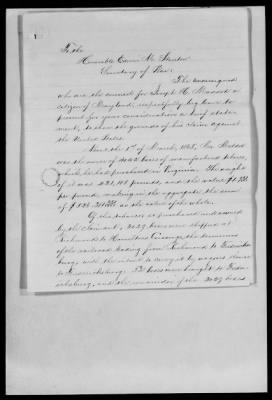 To the
Honorable Edwin M. Stanton
Secretary of War:
The undersigned
who are the counsel for Joseph H. Maddox a
citizen of Maryland, respectfully beg leave to
present for your consideration a brief state-
ment, to show the grounds of his claim against
the United States.
About the 1st of March, 1865, Mr. Maddox
was the owner of boxes of manufactured tobacco,
which he had purchased in Virginia. The weight
of it was pounds, and the value
per pound, making in the aggregate, the sum
of as the value of the whole.
Of the tobacco so purchased and owned
by the claimant, boxes were shipped at
Richmond to Hamilton's Crossing, the terminus
of the railroad leading from Richmond to Fredericks-
burg, with the intent to carry it by wagons thence
to Fredericksburg. boxes were brought to Fred-
ericksburg, and the remainder of the boxes